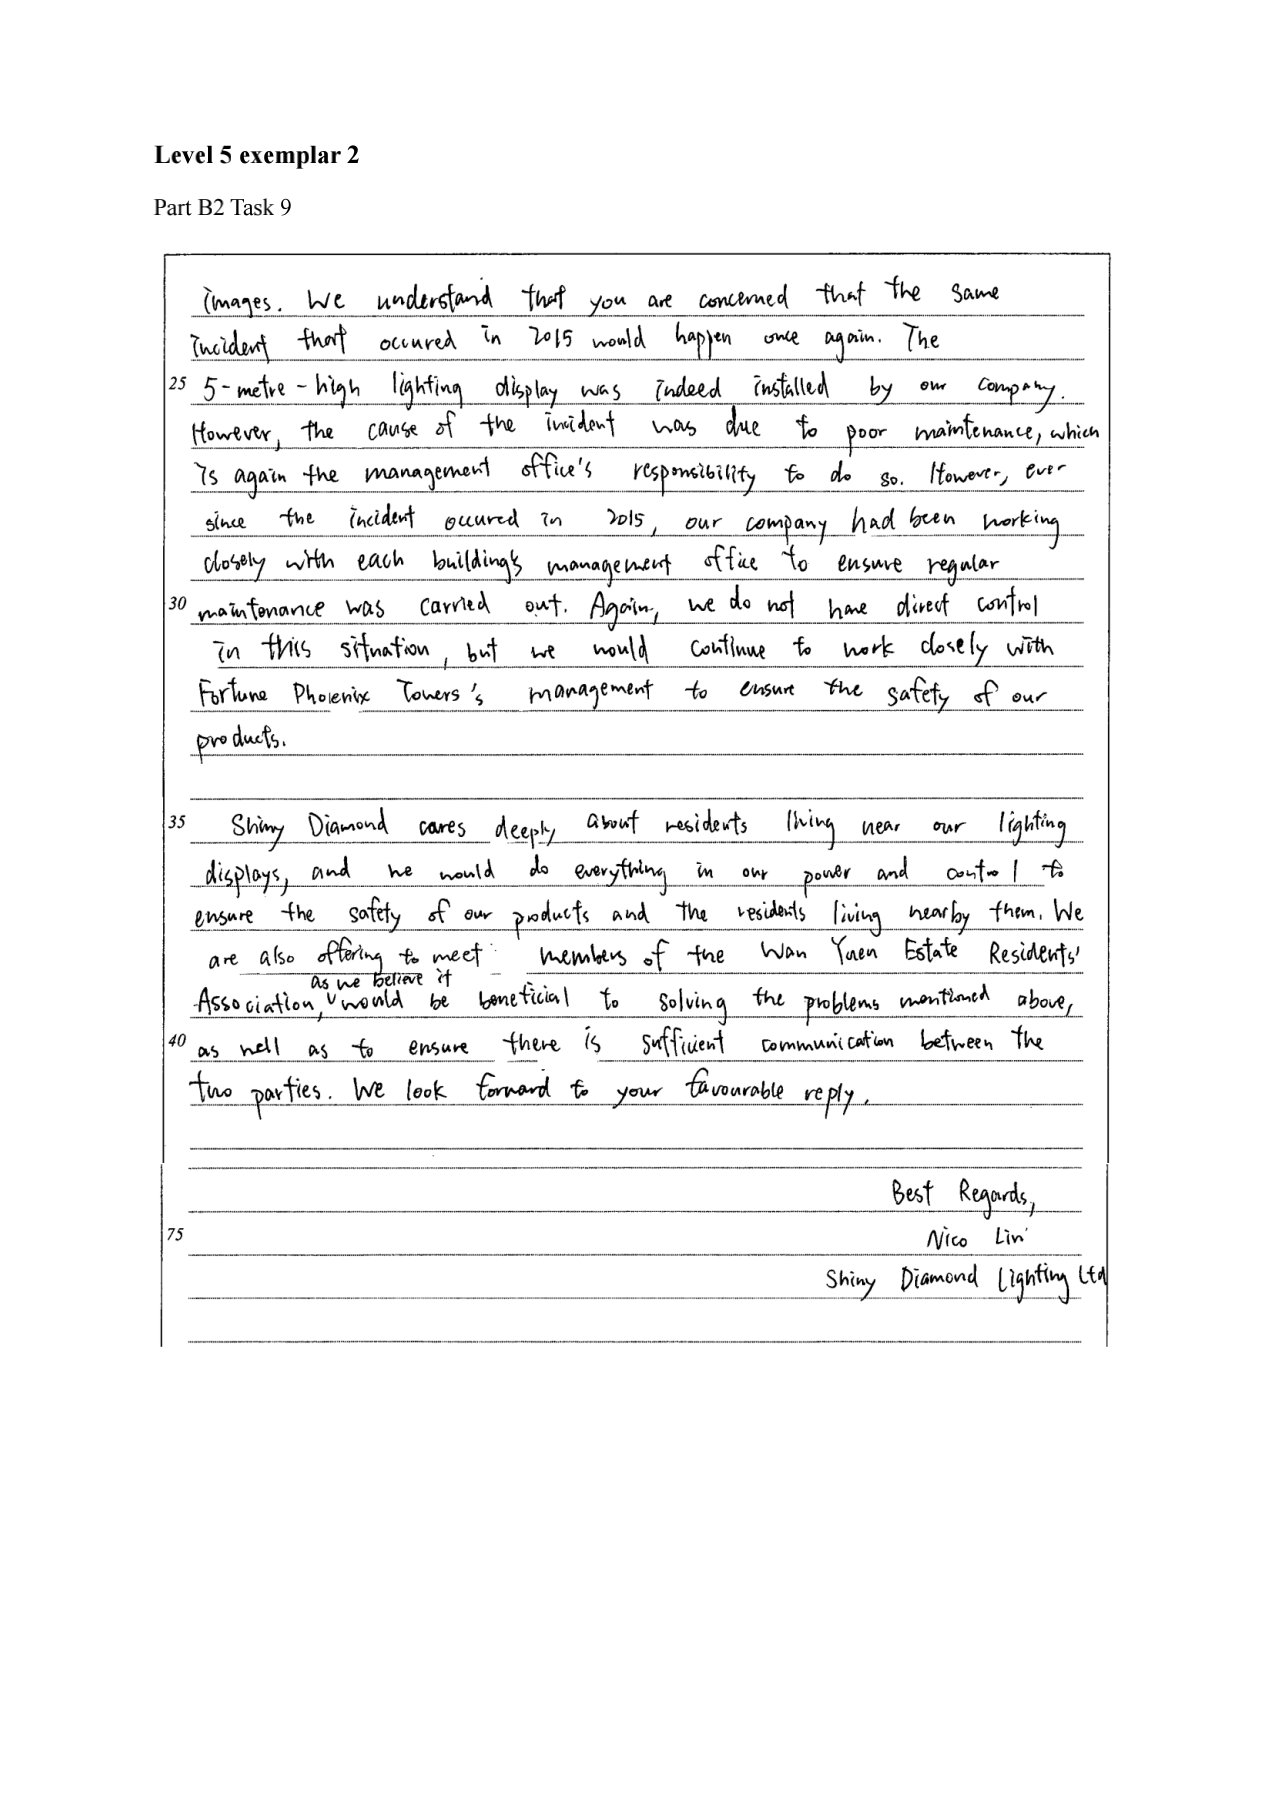 Level 5 exemplar 2
Part B2 Task 9
images. We understand that you are concerned that the same
incident that occured in 2015 would happen once again. The
25 5-metre-high lighting display was indeed installed by our company.
However, the cause of the incident was due to poor maintenance, which
is again the management office's responsibility to do so. However, ever
since the incident occured in 2015, our company had been working
closely with each building's management office to ensure regular
30 maintenance was carried out. Again, we do not have direct control
in this situation, but we would continue to work closely with
Fortune Phoienix Towers's management to ensure the safety of our
products.
35 Shiny Diamond cares deeply about residents living near our lighting
displays, and we would do everything in our power and control to
ensure the safety of our products and the residents living nearby them. We
are also offering to meet members of the Wan Yuen Estate Residents'
as we believe it
Association, would be beneficial to solving the problems mentioned above,
40 as well as to ensure there is sufficient communication between the
two parties. We look forward to your favourable reply.
Best Regards,
75 Nico Lin
Shiny Diamond Lighting Ltd